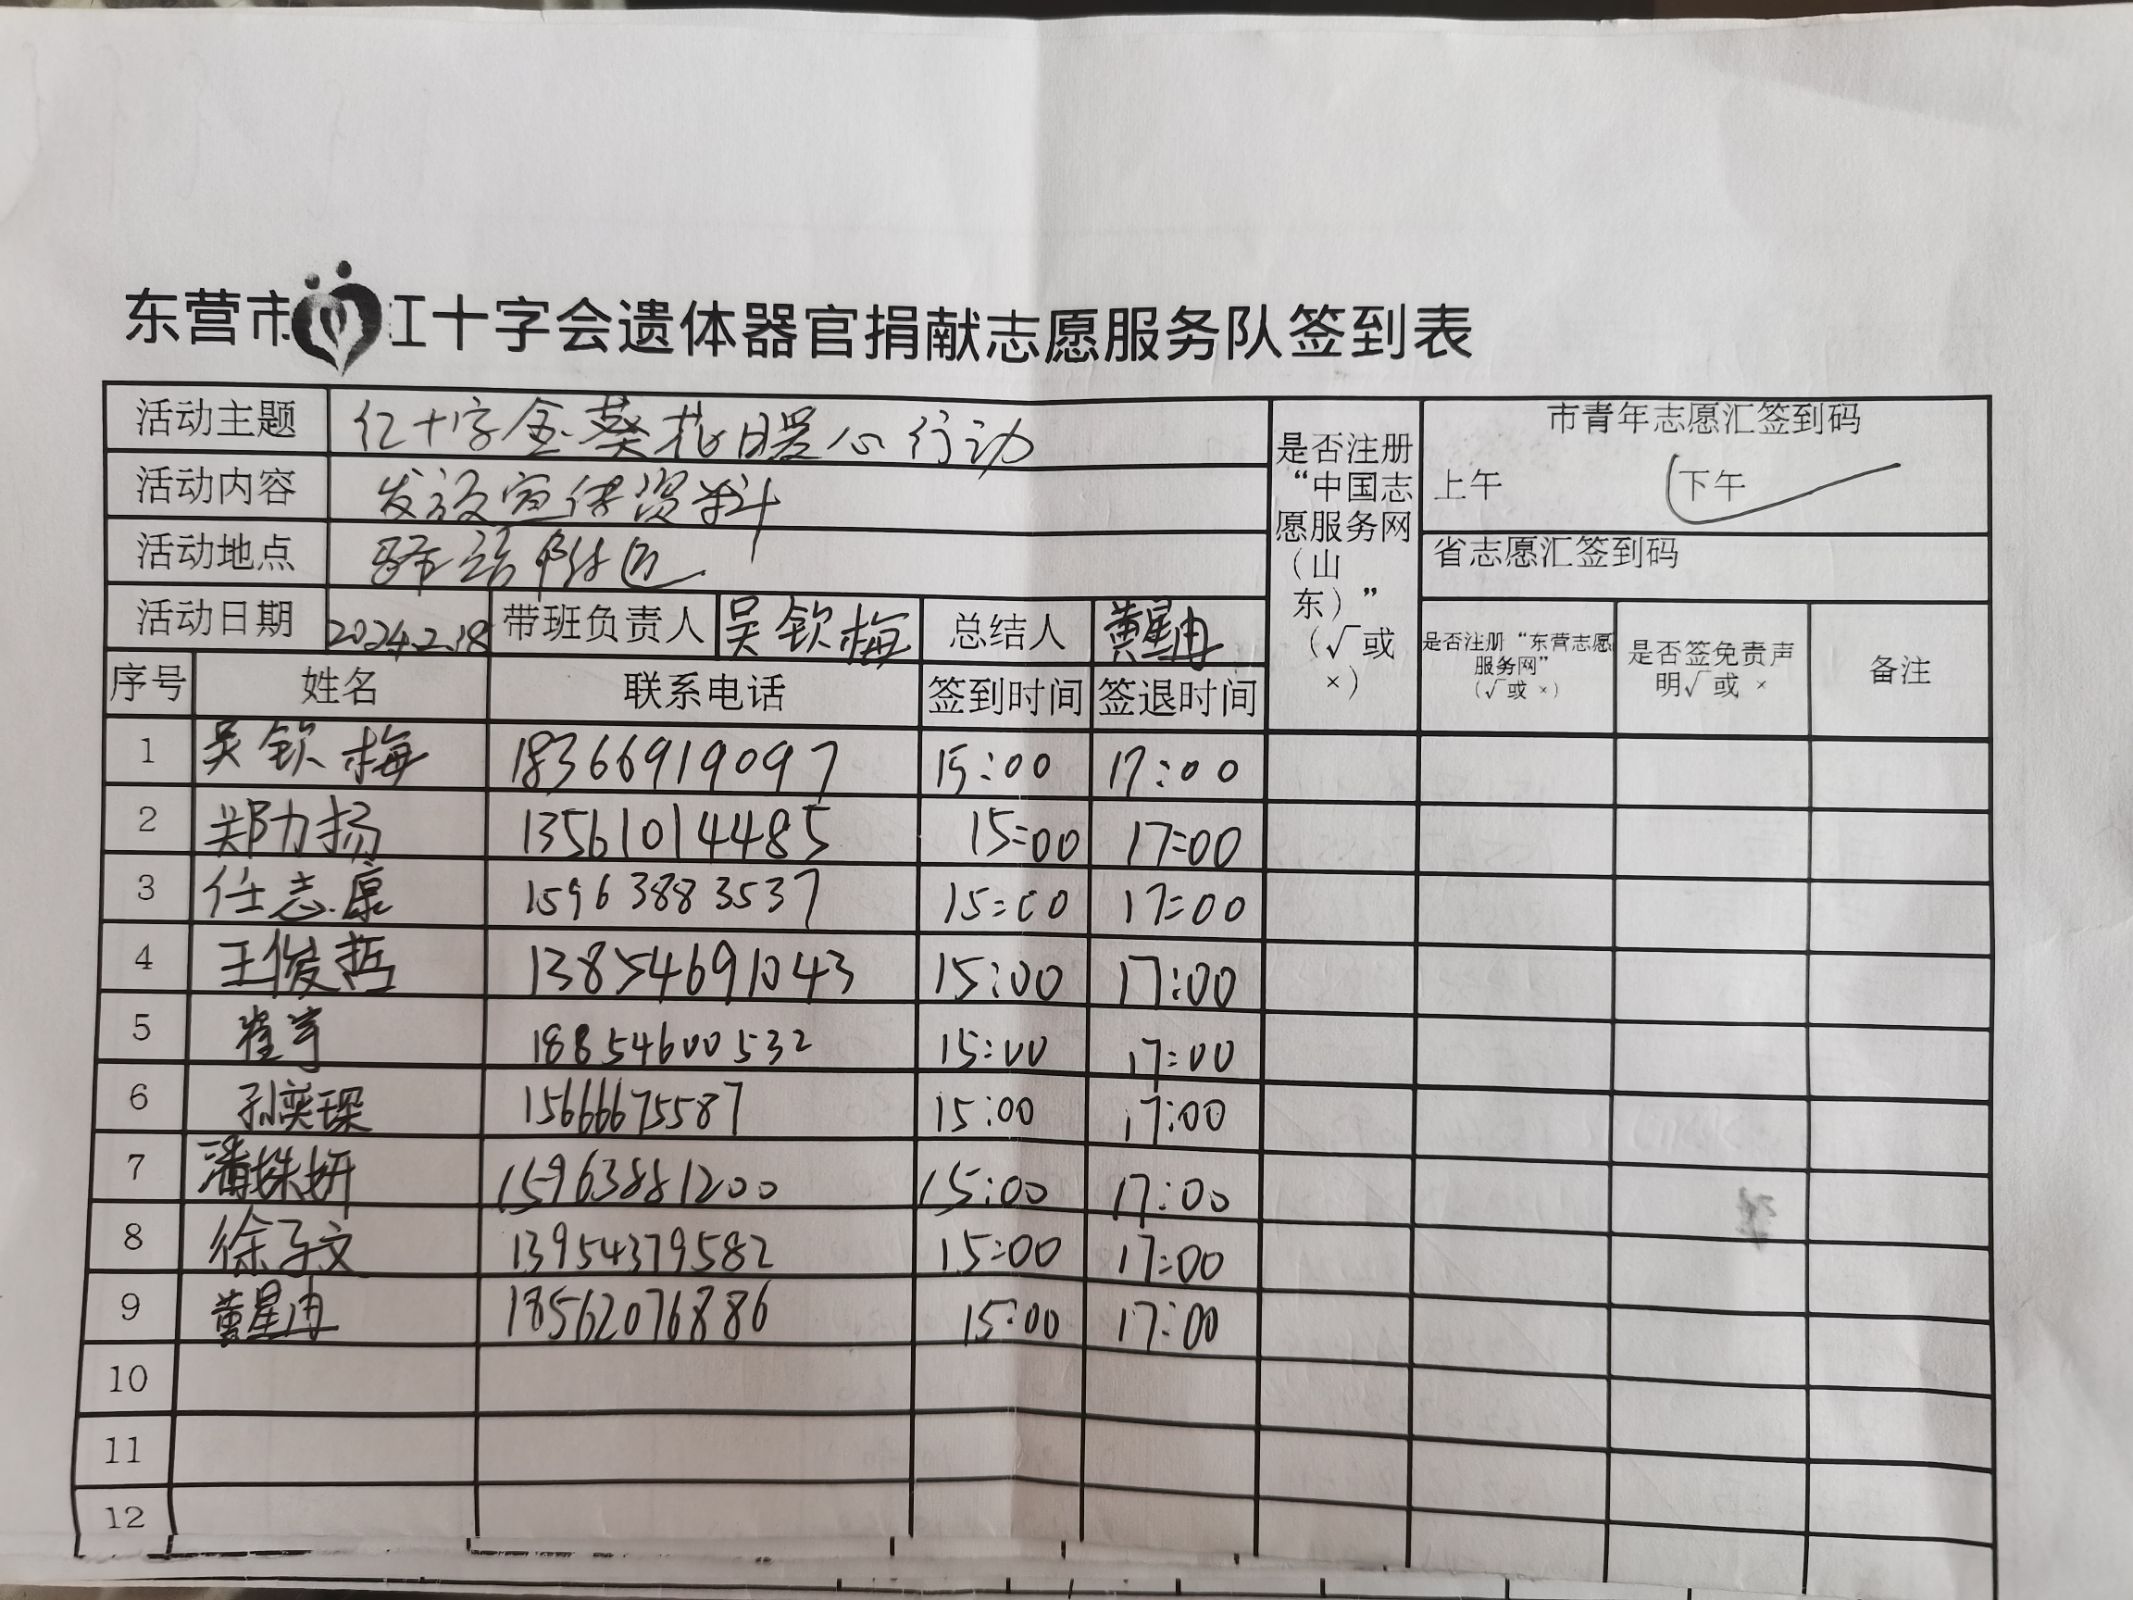 东营市红十字会遗体器官捐献志愿服务队签到表
活动主题 红十字金葵花暖心行动
活动内容 发放宣传资料
活动地点 驿站附近
活动日期 2024.2.18 带班负责人 吴钦梅 总结人 黄星冉
是否注册“中国志愿服务网(山东)”(√或×)
市青年志愿汇签到码
上午 下午
省志愿汇签到码
是否注册“东营志愿服务网”(√或×) 是否签免责声明√或× 备注
序号 姓名 联系电话 签到时间 签退时间
1 吴钦梅 18366919097 15:00 17:00
2 郑力扬 13561014485 15:00 17:00
3 任志康 15963883537 15:00 17:00
4 王俊哲 13854691043 15:00 17:00
5 崔宇 18854600532 15:00 17:00
6 孙奕琛 15666675587 15:00 17:00
7 潘姝妍 15963881200 15:00 17:00
8 徐子文 13954379582 15:00 17:00
9 黄星冉 18562076886 15:00 17:00
10
11
12